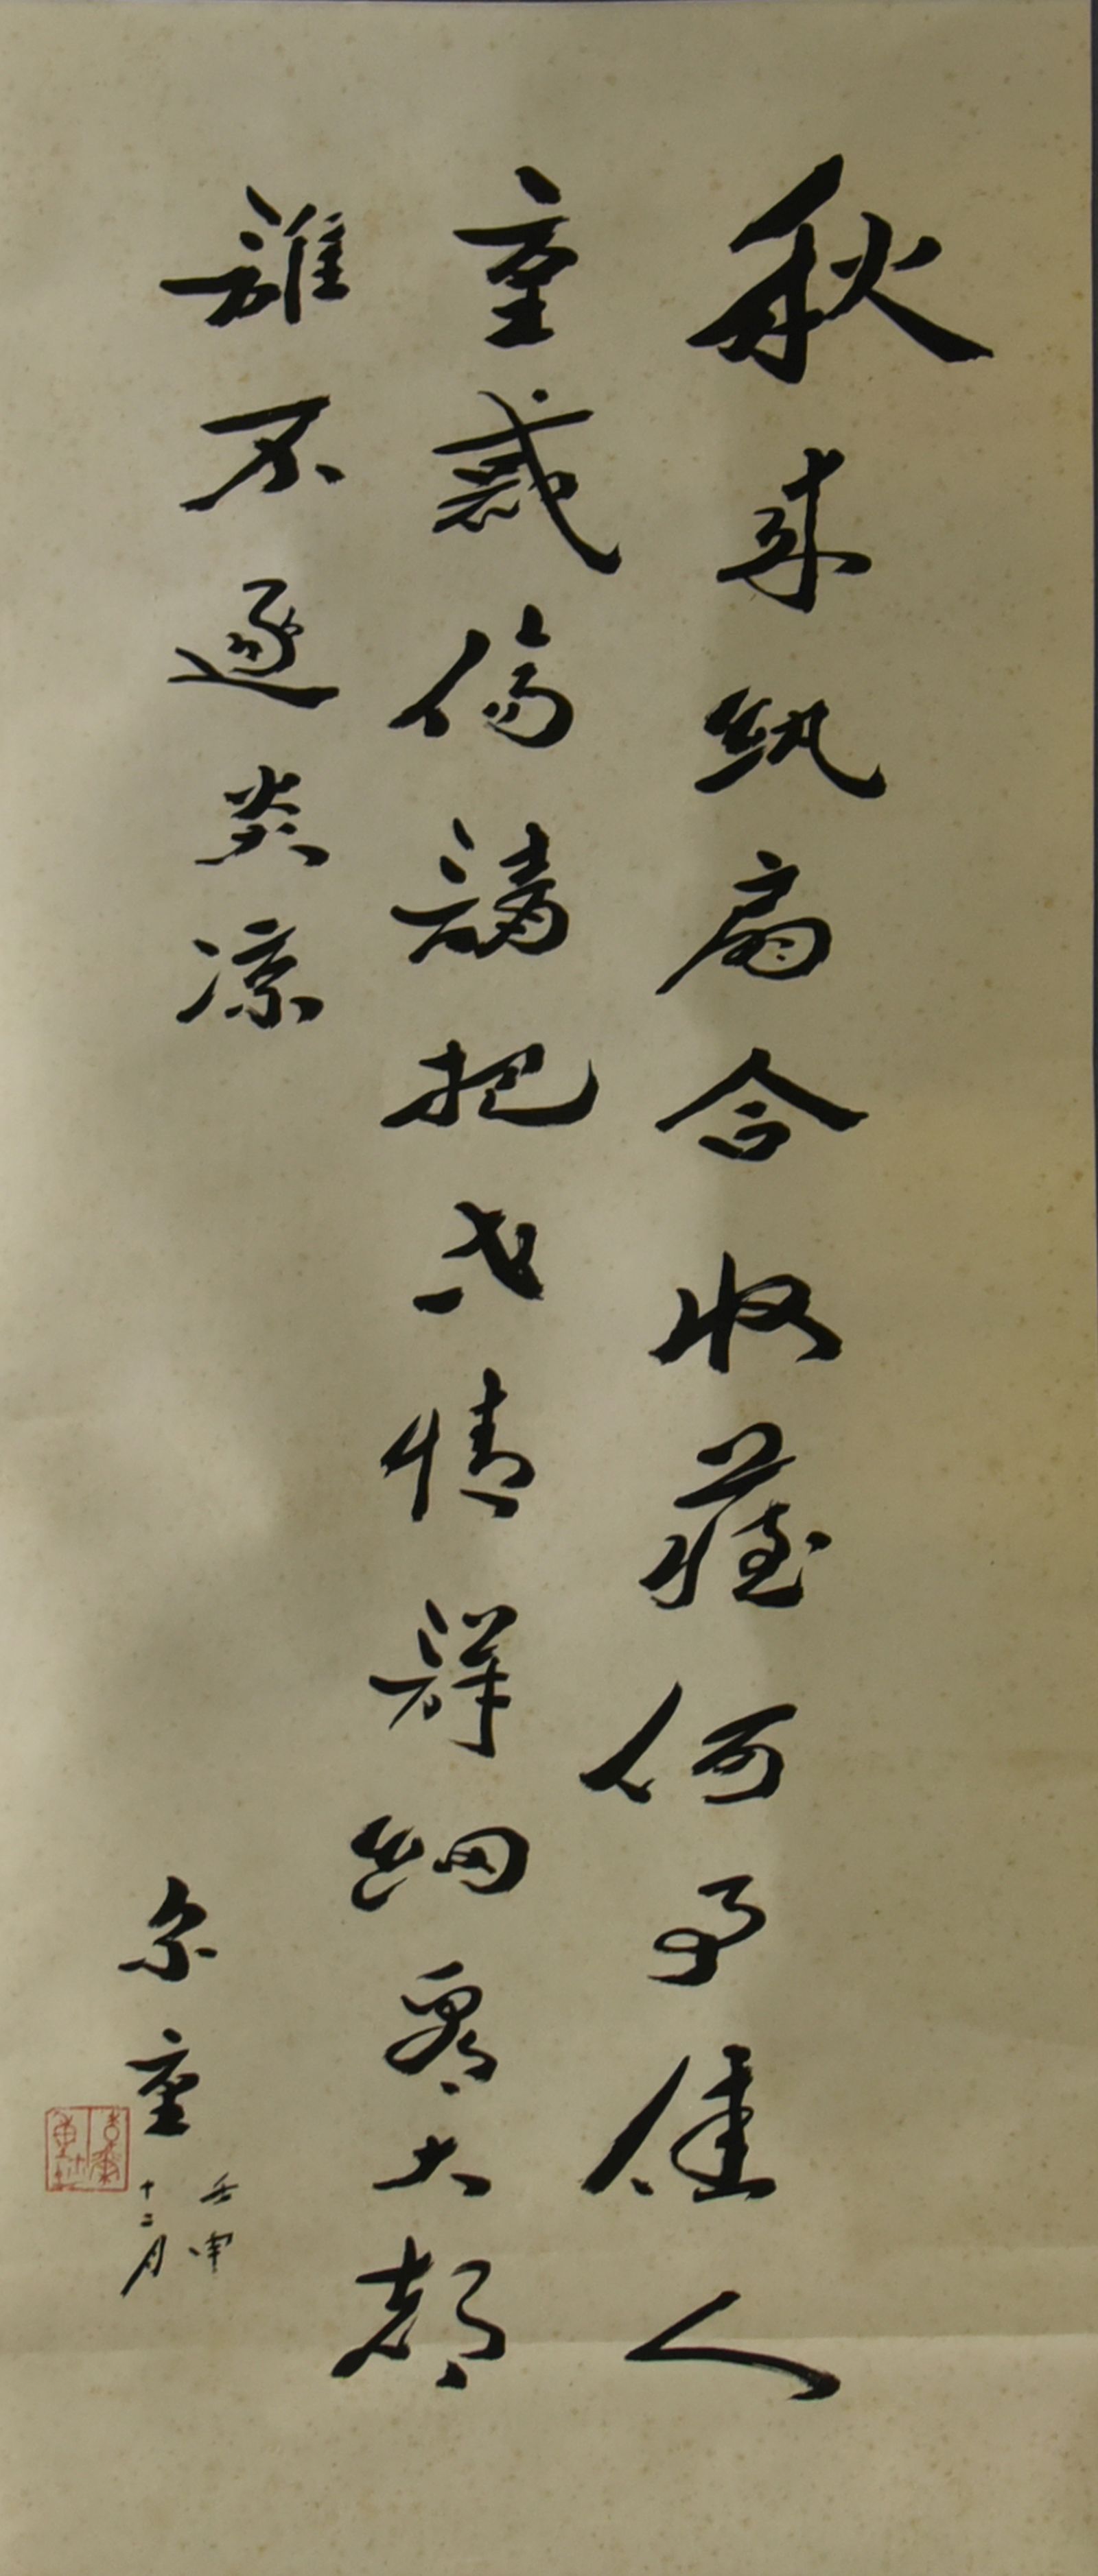 秋來紈扇合收藏何事佳人
重感傷請把世情詳細看大都
誰不逐炎涼
尔重
壬申
十二月